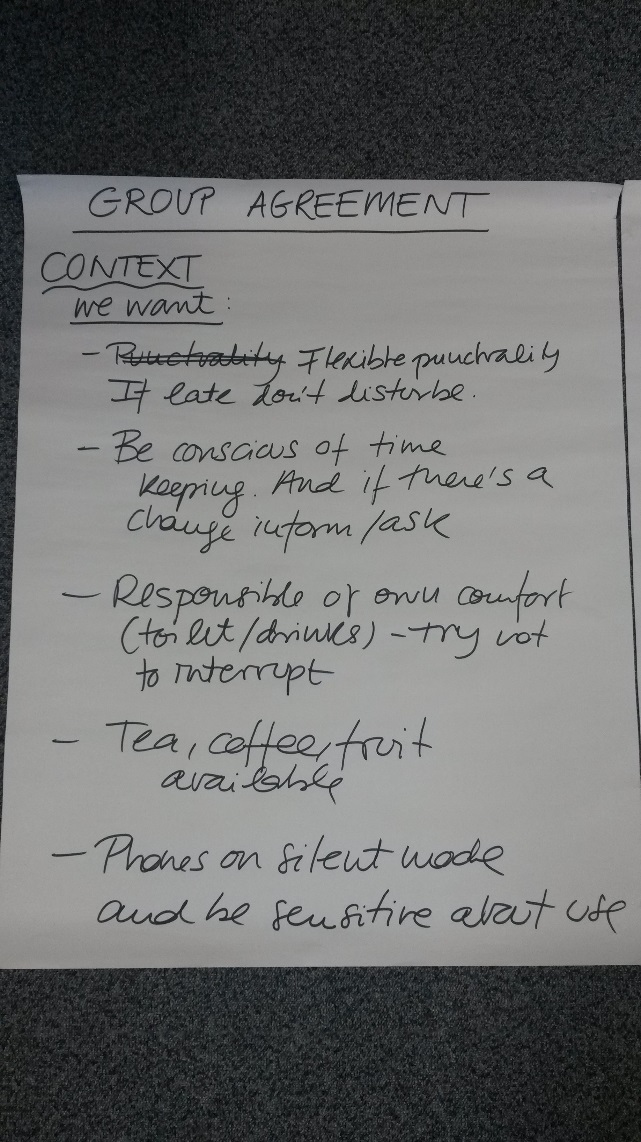 GROUP AGREEMENT
CONTEXT
we want:
- Punctuality Flexible punctuality
If late don't disturbe.
- Be conscious of time
keeping. And if there's a
change inform/ask
- Responsible of own comfort
(toilet/drinks) - try not
to interrupt
- Tea, coffee, fruit
available
- Phones on silent mode
and be sensitive about use